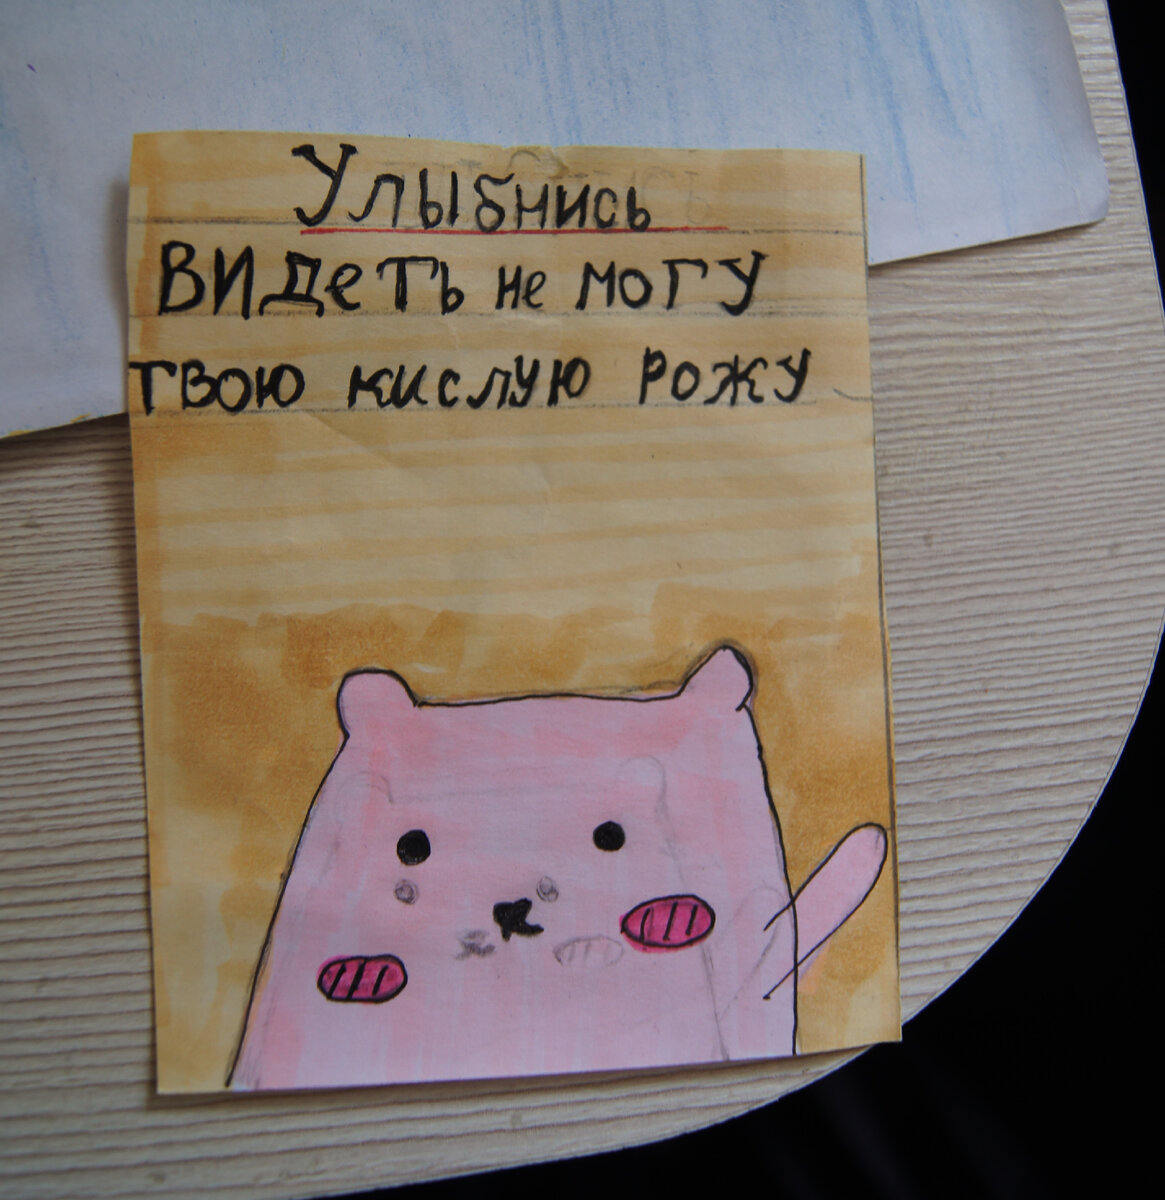 Улыбнись
ВИДеТЬ не могу
ТВОЮ кислую рожу